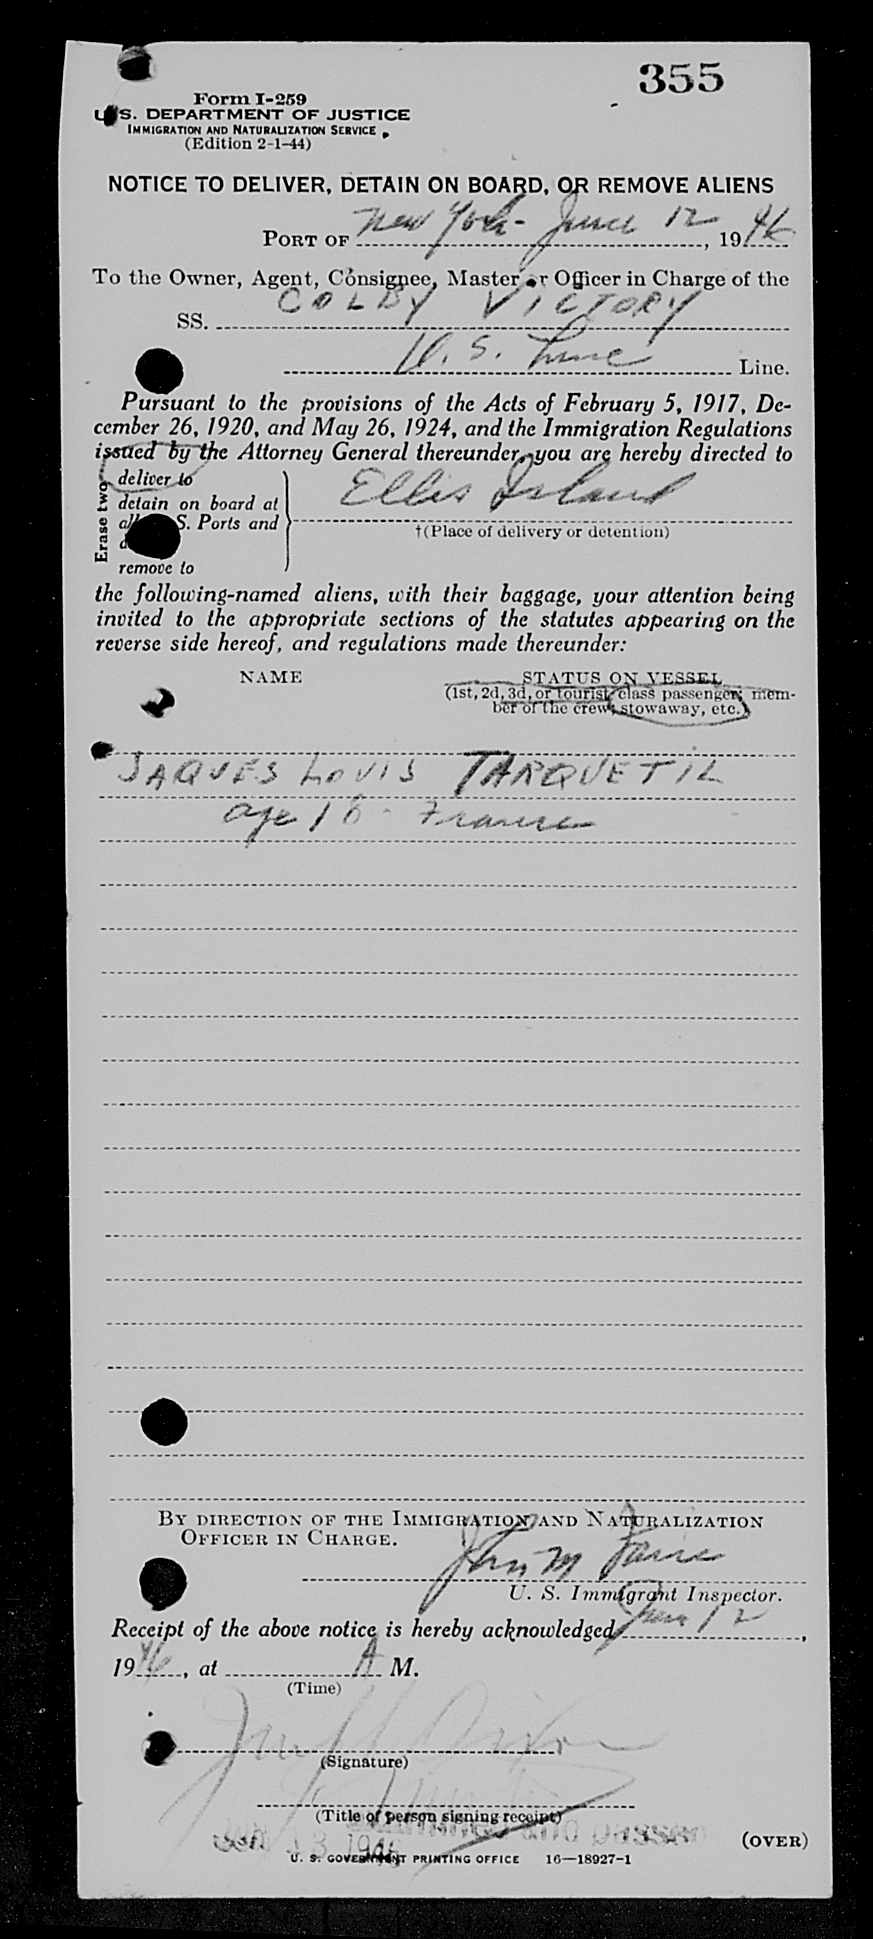 355
Form I-259
U.S. DEPARTMENT OF JUSTICE
IMMIGRATION AND NATURALIZATION SERVICE
(Edition 2-1-44)
NOTICE TO DELIVER, DETAIN ON BOARD, OR REMOVE ALIENS
PORT OF New York - June 12, 1946
To the Owner, Agent, Consignee, Master or Officer in Charge of the
SS. COLBY VICTORY
U.S. Line Line.
Pursuant to the provisions of the Acts of February 5, 1917, De-
cember 26, 1920, and May 26, 1924, and the Immigration Regulations
issued by the Attorney General thereunder, you are hereby directed to
Erase two
deliver to
detain on board at
all U.S. Ports and
remove to
Ellis Island
†(Place of delivery or detention)
the following-named aliens, with their baggage, your attention being
invited to the appropriate sections of the statutes appearing on the
reverse side hereof, and regulations made thereunder:
NAME STATUS ON VESSEL
(1st, 2d, 3d, or tourist class passenger, mem-
ber of the crew, stowaway, etc.)
JAQUES LOUIS TARQUETIL
age 16 - France
BY DIRECTION OF THE IMMIGRATION AND NATURALIZATION
OFFICER IN CHARGE.
John M
U. S. Immigrant Inspector.
Receipt of the above notice is hereby acknowledged June 12,
1946, at A M.
(Time)
(Signature)
(Title of person signing receipt)
(OVER)
U. S. GOVERNMENT PRINTING OFFICE 16—18927-1